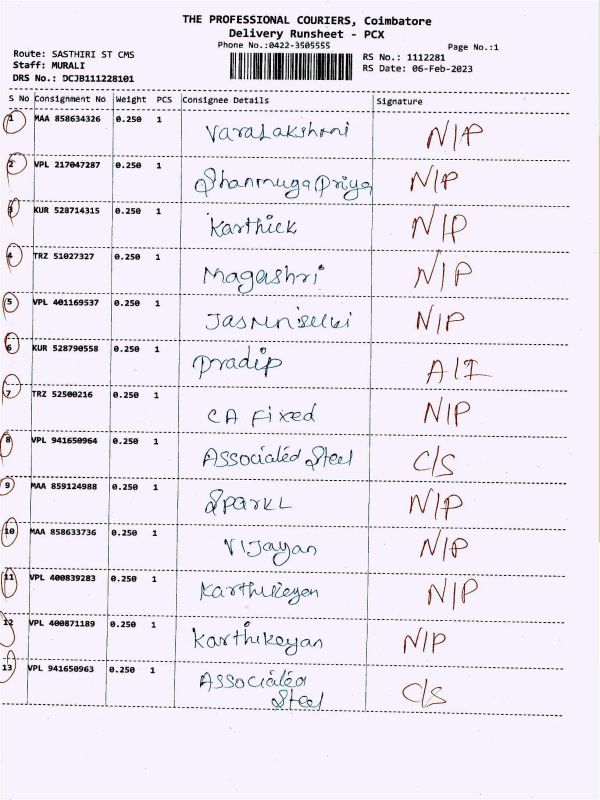 THE PROFESSIONAL COURIERS, Coimbatore
Delivery Runsheet - PCX
Phone No.:0422-3505555
Page No.:1
Route: SASTHIRI ST CMS
Staff: MURALI
DRS No.: DCJB111228101
RS No.: 1112281
RS Date: 06-Feb-2023
S No Consignment No Weight PCS Consignee Details Signature
1 MAA 858634326 0.250 1 Varalakshmi N/P
2 VPL 217047287 0.250 1 Shanmuga Priya N/P
3 KUR 528714315 0.250 1 Karthick N/P
4 TRZ 51027327 0.250 1 Magashri N/P
5 VPL 401169537 0.250 1 N/P
6 KUR 528790558 0.250 1 Pradip A/I
7 TRZ 52500216 0.250 1 CA Fixed N/P
8 VPL 941650964 0.250 1 Associated Steel C/S
9 MAA 859124988 0.250 1 N/P
10 MAA 858633736 0.250 1 Vijayan N/P
11 VPL 400839283 0.250 1 Karthikeyen N/P
12 VPL 400871189 0.250 1 Karthikeyan N/P
13 VPL 941650963 0.250 1 Associated C/S
Steel